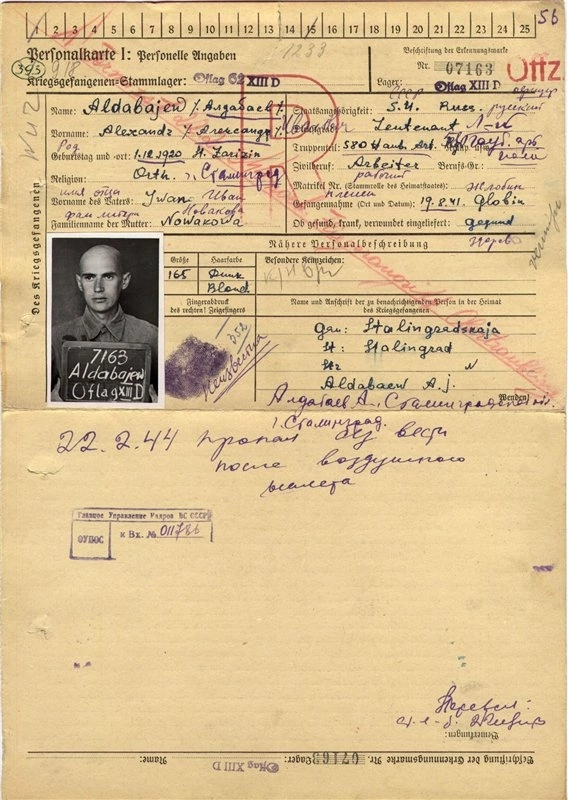 1 2 3 4 5 6 7 8 9 10 11 12 13 14 15 16 17 18 19 20 21 22 23 24 25
56
Personalkarte I: Personelle Angaben
1233
Beschriftung der Erkennungsmarke
393
918
Nr. 07163
Offz.
Kriegsgefangenen-Stammlager: Oflag 62 XIII D
Lager: Oflag XIII D
Des Kriegsgefangenen
Name: Aldabajew / Алдабаев /
Staatsangehörigkeit: S.U. Russ. русский
СССР
Vorname: Alexandr / Александр /
Dienstgrad: Leutenant Л-т
Geburtstag und -ort: 1.12.1920 N. Zarizin
Truppenteil: 580 Haub. Art.
Religion: Orth. г. Сталинград
Zivilberuf: Arbeiter Berufs-Gr.:
рабочий
имя отца
Matrikel Nr. (Stammrolle des Heimatstaates): Жлобин
пленен
Vorname des Vaters: Iwan Иван
Gefangennahme (Ort und Datum): 19.8.41. Globin
фам. матери Новакова
Familienname der Mutter: Nowakowa
Ob gesund, krank, verwundet eingeliefert: gesund
здоров
Nähere Personalbeschreibung
Größe Haarfarbe Besondere Kennzeichen:
165 Dunk Blond
Fingerabdruck des rechten! Zeigefingers
Name und Anschrift der zu benachrichtigenden Person in der Heimat des Kriegsgefangenen
7163
Aldabajew
Oflag XIII D
Неизвестна
Gau: Stalingradskaja
St: Stalingrad
Str N
Aldabaew A. j.
Wenden!
Алдабаев А., Сталинградская
г. Сталинград.
22.2.44 пропал без вести
после воздушного
налета
Главное Управление Кадров ВС СССР
ОУПОС
к Вх. № 011786
Перевел:
Bemerkungen:
Beschriftung der Erkennungsmarke Nr. 07163
Lager: Oflag XIII D
Name: